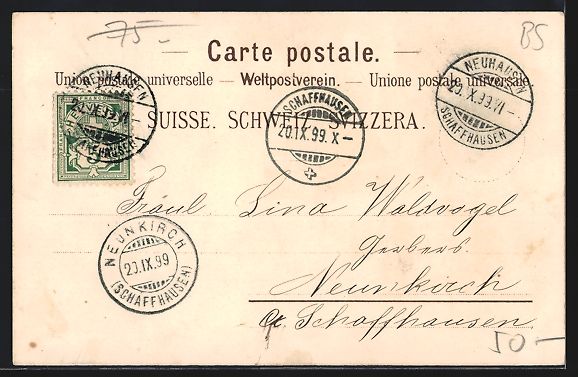 75 —
B5
Carte postale.
Union postale universelle — Weltpostverein. — Unione postale universale.
SUISSE. SCHWEIZ. SVIZZERA.
NEUHAUSEN
SCHAFFHAUSEN
20.IX.99. X —
NEUHAUSEN
20.IX.99.VI —
(SCHAFFHAUSEN)
Fräul Lina Waldvogel
Gerbers.
Neunkirch
Ct. Schaffhausen.
NEUNKIRCH
20.IX.99
(SCHAFFHAUSEN)
50 —